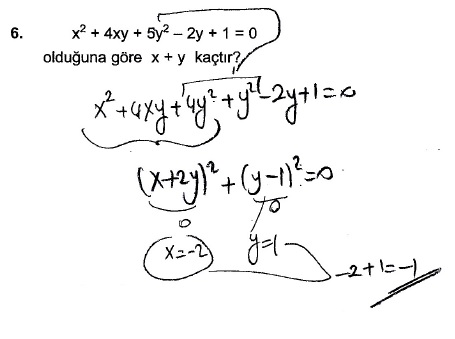 6. x² + 4xy + 5y² – 2y + 1 = 0
olduğuna göre x + y kaçtır?
x² + 4xy + 4y² + y² – 2y + 1 = 0
(x + 2y)² + (y – 1)² = 0
0 0
x = –2 y = 1 –2 + 1 = –1